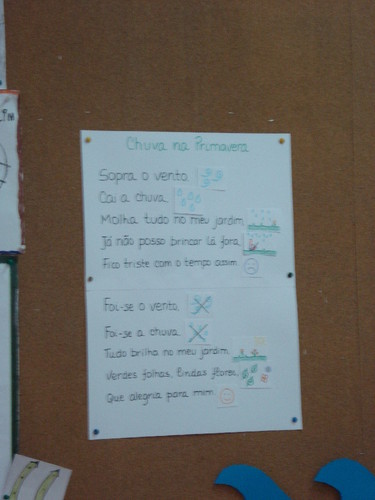 Chuva na Primavera
Sopra o vento
Cai a chuva
Molha tudo no meu jardim
Já não posso brincar lá fora
Fico triste com o tempo assim
Foi-se o vento
Foi-se a chuva
Tudo brilha no meu jardim
Verdes folhas, lindas flores,
Que alegria para mim